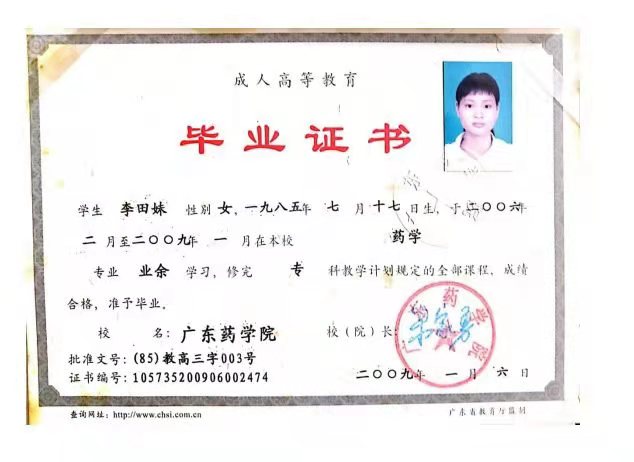 成人高等教育
毕业证书
学生 李田妹 性别 女,一九八五年 七 月十七日生,于二〇〇六年
二 月至二〇〇九年 一 月在本校 药学
专业 业余 学习,修完 专 科教学计划规定的全部课程,成绩
合格,准予毕业。
校 名:广东药学院 校(院)长:
批准文号:(85)教高三字003号
证书编号:105735200906002474 二〇〇九年 一 月 六 日
查询网址:http://www.chsi.com.cn 广东省教育厅监制
广东药学院